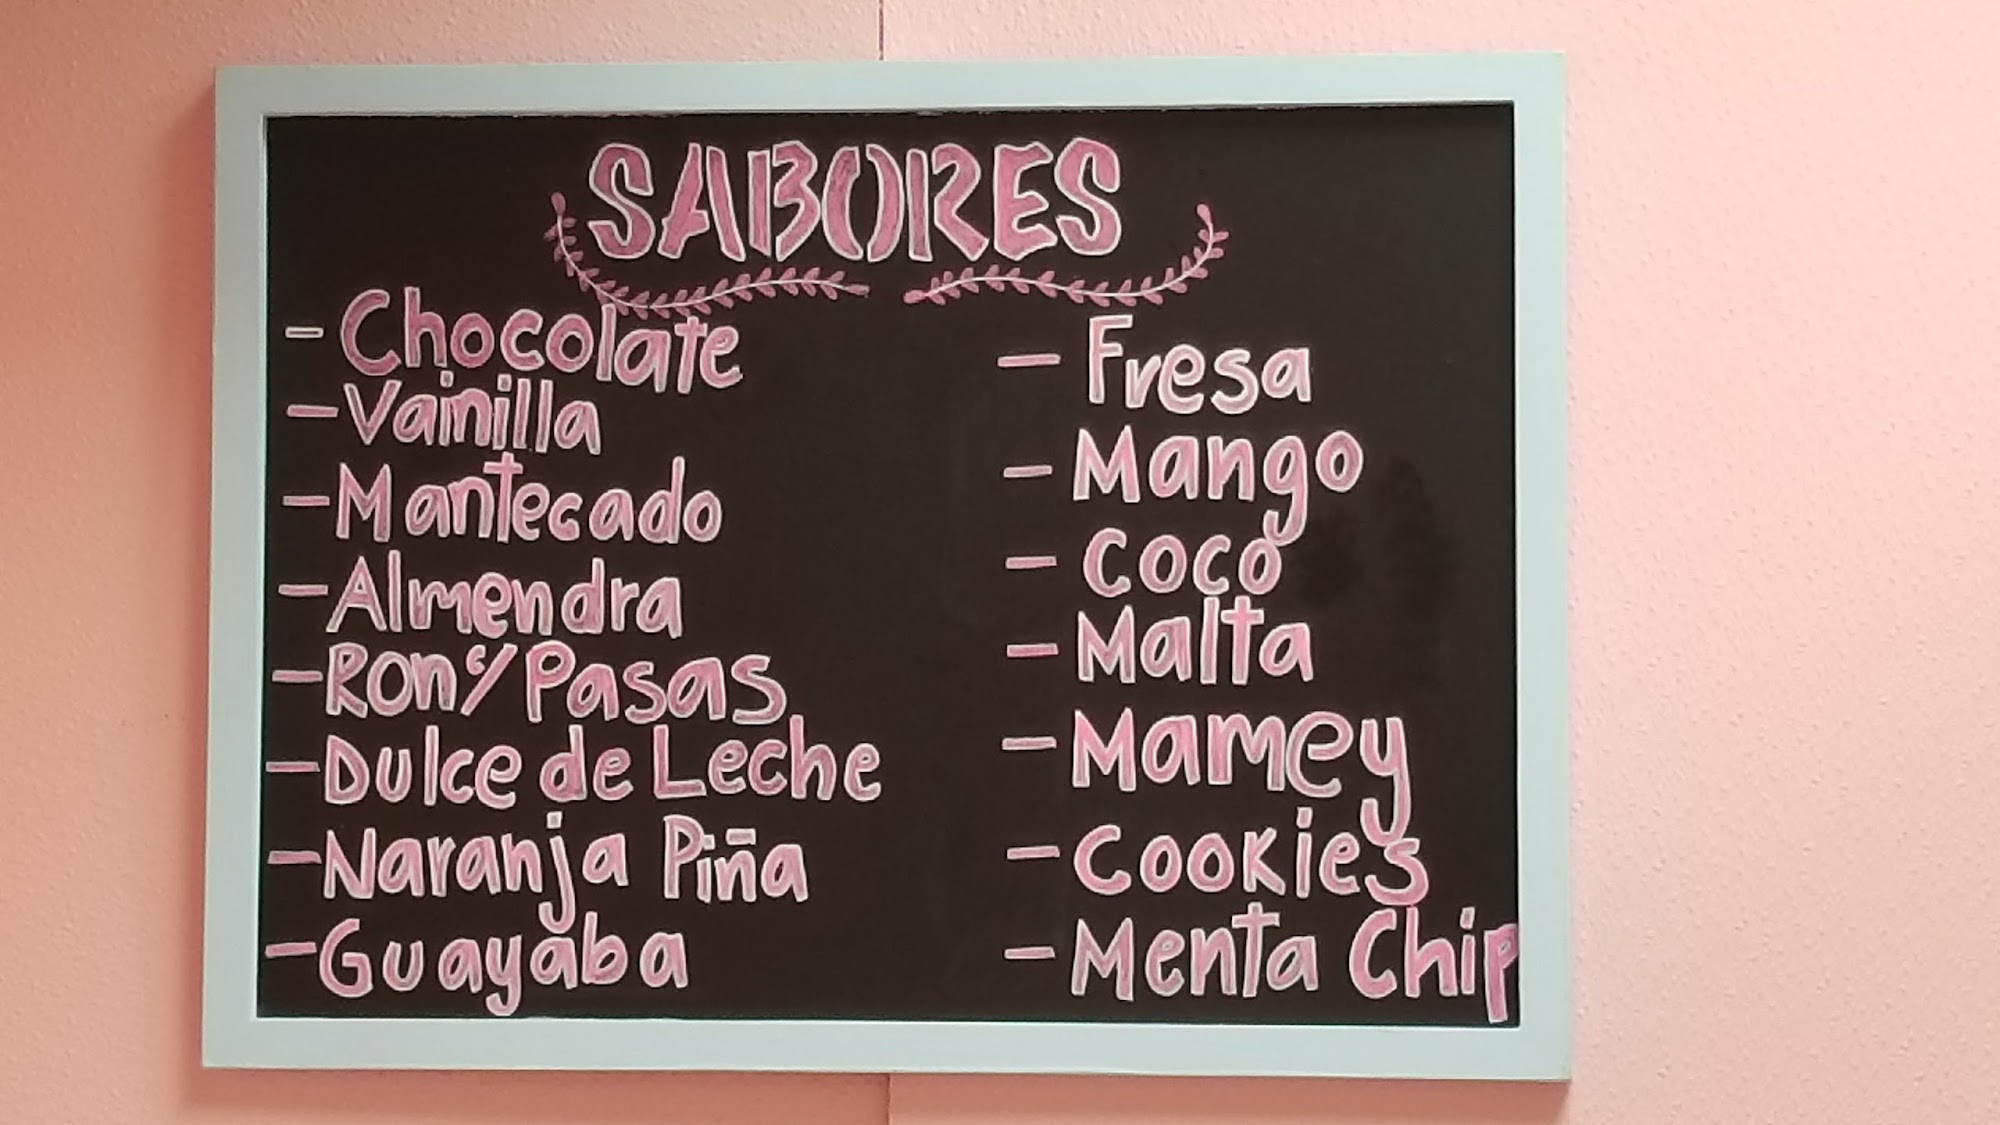 SABORES
- Chocolate
- Vainilla
- Mantecado
- Almendra
- Ron y Pasas
- Dulce de Leche
- Naranja Piña
- Guayaba
- Fresa
- Mango
- Coco
- Malta
- Mamey
- Cookies
- Menta Chip